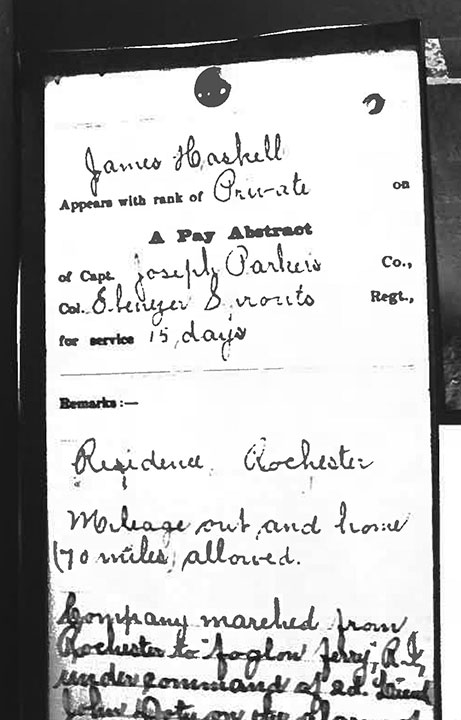 James Haskell
Appears with rank of Private on
A Pay Abstract
of Capt. Joseph Parkers Co.,
Col. Ebenezer Sprouts Regt.,
for service 15 days
Remarks:—
Residence, Rochester
Mileage out and home
(70 miles) allowed.
Company marched from
Rochester to "foglon ferry", R.I,
under command of 2d. Lieut
John Doty on the alarm